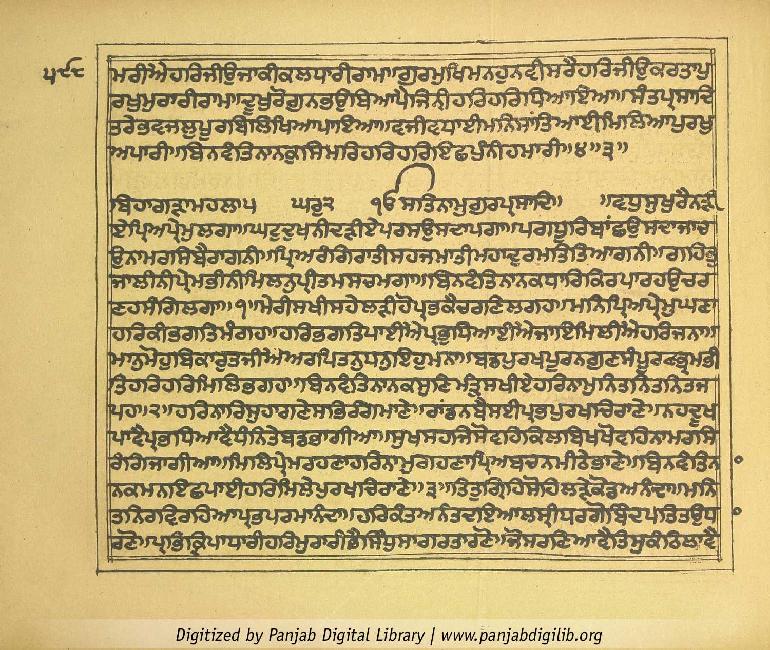 ਮਰੀਐਹਰਿਜੀਉਜਾਕੀਕਲਧਾਰੀਰਾਮ॥ਗੁਰਮੁਖਿਮਨਹੁਨਵੀਸਰੈਹਰਿਜੀਉਕਰਤਾਪੁ
ਰਖੁਮੁਰਾਰੀਰਾਮ॥ਦੂਖੁਰੋਗੁਨਭਉਬਿਆਪੈਜਿਨੀਹਰਿਹਰਿਧਿਆਇਆ॥ਸੰਤਪ੍ਰਸਾਦਿ
ਤਰੇਭਵਜਲੁਪੂਰਬਿਲਿਖਿਆਪਾਇਆ॥ਵਜੀਵਧਾਈਮਨਿਸਾਂਤਿਆਈਮਿਲਿਆਪੁਰਖੁ
ਅਪਾਰੀ॥ਬਿਨਵੰਤਿਨਾਨਕੁਸਿਮਰਿਹਰਿਹਰਿਇਛਪੁੰਨੀਹਮਾਰੀ॥੪॥੩॥
ਬਿਹਾਗੜਾਮਹਲਾ੫ ਘਰੁ੨ ੴਸਤਿਨਾਮੁਗੁਰਪ੍ਰਸਾਦਿ॥ ॥ਵਧੁਸੁਖੁਰੈਨੜੀ
ਏਪ੍ਰਿਅਪ੍ਰੇਮੁਲਗਾ॥ਘਟੁਦੁਖਨੀਦੜੀਏਪਰਸਉਸਦਾਪਗਾ॥ਪਗਧੂਰਿਬਾਂਛਉਸਦਾਜਾਚ
ਉਨਾਮਰਸਿਬੈਰਾਗਨੀ॥ਪ੍ਰਿਅਰੰਗਿਰਾਤੀਸਹਜਮਾਤੀਮਹਾਦੁਰਮਤਿਤਿਆਗਨੀ॥ਗਹਿਭੁ
ਜਾਲੀਨੀਪ੍ਰੇਮਭੀਨੀਮਿਲਨੁਪ੍ਰੀਤਮਸਚਮਗਾ॥ਬਿਨਵੰਤਿਨਾਨਕਧਾਰਿਕਿਰਪਾਰਹਉਚਰ
ਣਹਸੰਗਿਲਗਾ॥੧॥ਮੇਰੀਸਖੀਸਹੇਲੜੀਹੋਪ੍ਰਭਕੈਚਰਣਿਲਗਹ॥ਮਨਿਪ੍ਰਿਅਪ੍ਰੇਮੁਘਣਾ
ਹਰਿਕੀਭਗਤਿਮੰਗਹ॥ਹਰਿਭਗਤਿਪਾਈਐਪ੍ਰਭੁਧਿਆਈਐਜਾਇਮਿਲੀਐਹਰਿਜਨਾ॥
ਮਾਨੁਮੋਹੁਬਿਕਾਰੁਤਜੀਐਅਰਪਿਤਨੁਧਨੁਇਹੁਮਨਾ॥ਬਡਪੁਰਖਪੂਰਨਗੁਣਸੰਪੂਰਨਭ੍ਰਮਭੀ
ਤਿਹਰਿਹਰਿਮਿਲਿਭਗਹ॥ਬਿਨਵੰਤਿਨਾਨਕਸੁਣਿਮੰਤ੍ਰੁਸਖੀਏਹਰਿਨਾਮੁਨਿਤਨਿਤਨਿਤਜ
ਪਹ॥੨॥ਹਰਿਨਾਰਿਸੁਹਾਗਣੇਸਭਿਰੰਗਮਾਣੇ॥ਰਾਂਡਨਬੈਸਈਪ੍ਰਭਪੁਰਖਚਿਰਾਣੇ॥ਨਹਦੂਖ
ਪਾਵੈਪ੍ਰਭਧਿਆਵੈਧੰਨਿਤੇਬਡਭਾਗੀਆ॥ਸੁਖਸਹਜਿਸੋਵਹਿਕਿਲਬਿਖਖੋਵਹਿਨਾਮਰਸਿ
ਰੰਗਿਜਾਗੀਆ॥ਮਿਲਿਪ੍ਰੇਮਰਹਣਾਹਰਿਨਾਮੁਗਹਣਾਪ੍ਰਿਅਬਚਨਮੀਠੇਭਾਣੇ॥ਬਿਨਵੰਤਿਨਾ
ਨਕਮਨਇਛਪਾਈਹਰਿਮਿਲੇਪੁਰਖਚਿਰਾਣੇ॥੩॥ਤਿਤੁਗ੍ਰਿਹਿਸੋਹਿਲੜੇਕੋਡਅਨੰਦਾ॥ਮਨਿ
ਤਨਿਰਵਿਰਹਿਆਪ੍ਰਭਪਰਮਾਨੰਦਾ॥ਹਰਿਕੰਤਅਨੰਤਦਇਆਲਸ੍ਰੀਧਰਗੋਬਿੰਦਪਤਿਤਉਧ
ਰਣੋ॥ਪ੍ਰਭਿਕ੍ਰਿਪਾਧਾਰੀਹਰਿਮੁਰਾਰੀਭੈਸਿੰਧੁਸਾਗਰਤਾਰਣੋ॥ਜੋਸਰਣਿਆਵੈਤਿਸੁਕੰਠਿਲਾਵੈ
Digitized by Panjab Digital Library | www.panjabdigilib.org